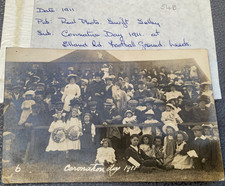 Date: 1911
Pub: Real Photo
Sub: Coronation Day 1911. at
Elland Rd. Football Ground. Leeds
6 Coronation Day 1911